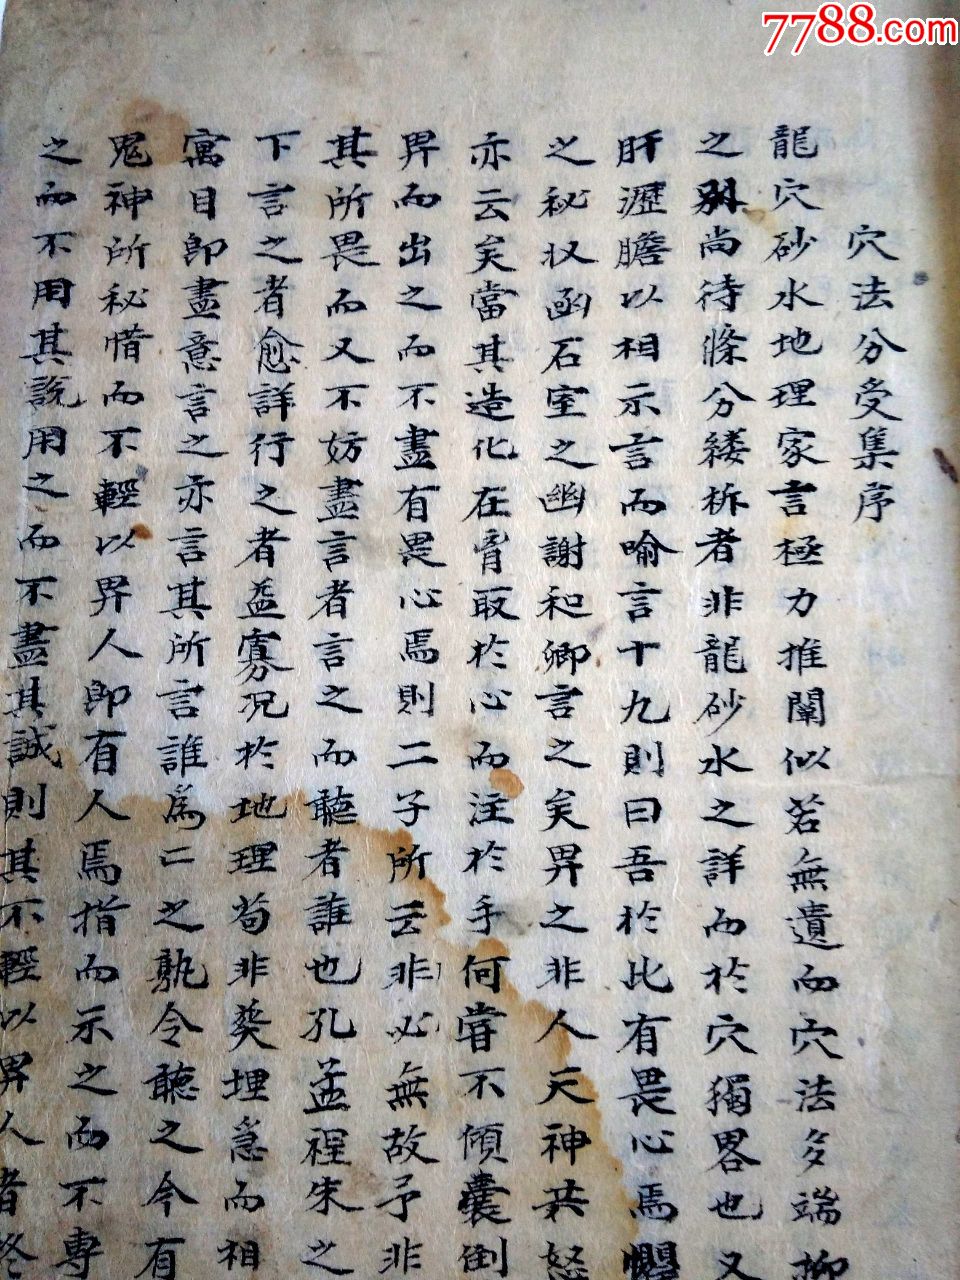 7788.com
穴法分受集序
龍穴砂水地理家言極力推闡似若無遺而穴法多端抑
之別尚待條分縷析者非龍砂水之詳而於穴獨畧也又
肝瀝膽以相示言而喻言十九則曰吾於比有畏心焉懼
之秘扙函石室之幽謝和卿言之矣畀之非人天神共怒
亦云矣當其造化在胷取於心而注於手何甞不傾囊倒
畀而出之而不盡有畏心焉則二子所云非必無故予非
其所畏而又不妨盡言者言之而聽者誰也孔孟裎朱之
下言之者愈詳行之者益寡况於地理茍非葬埋急而相
寓目即盡意言之亦言其所言誰爲亡之孰令聽之今有
鬼神所秘惜而不輕以畀人即有人焉指而示之而不專
之而不用其說用之而不盡其誠則其不輕以畀人者終